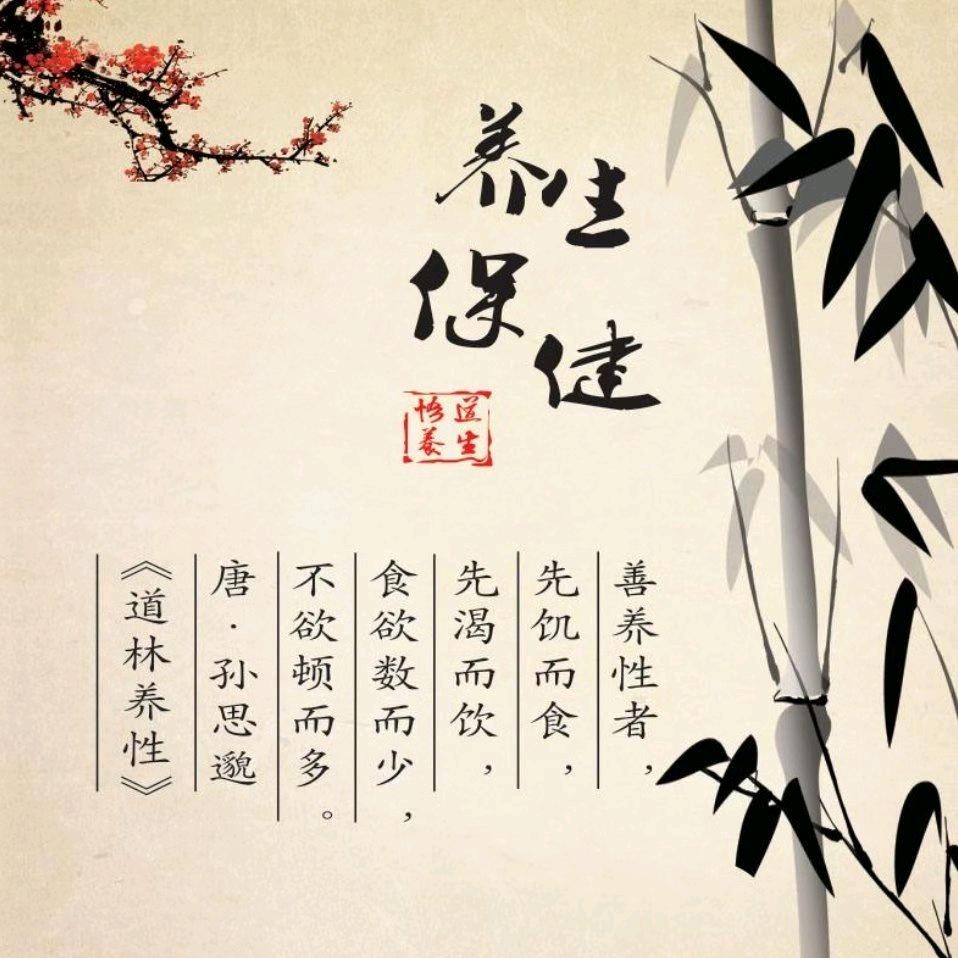 养生
保健
悟道
养生
善养性者，
先饥而食，
先渴而饮，
食欲数而少，
不欲顿而多。
唐·孙思邈
《道林养性》